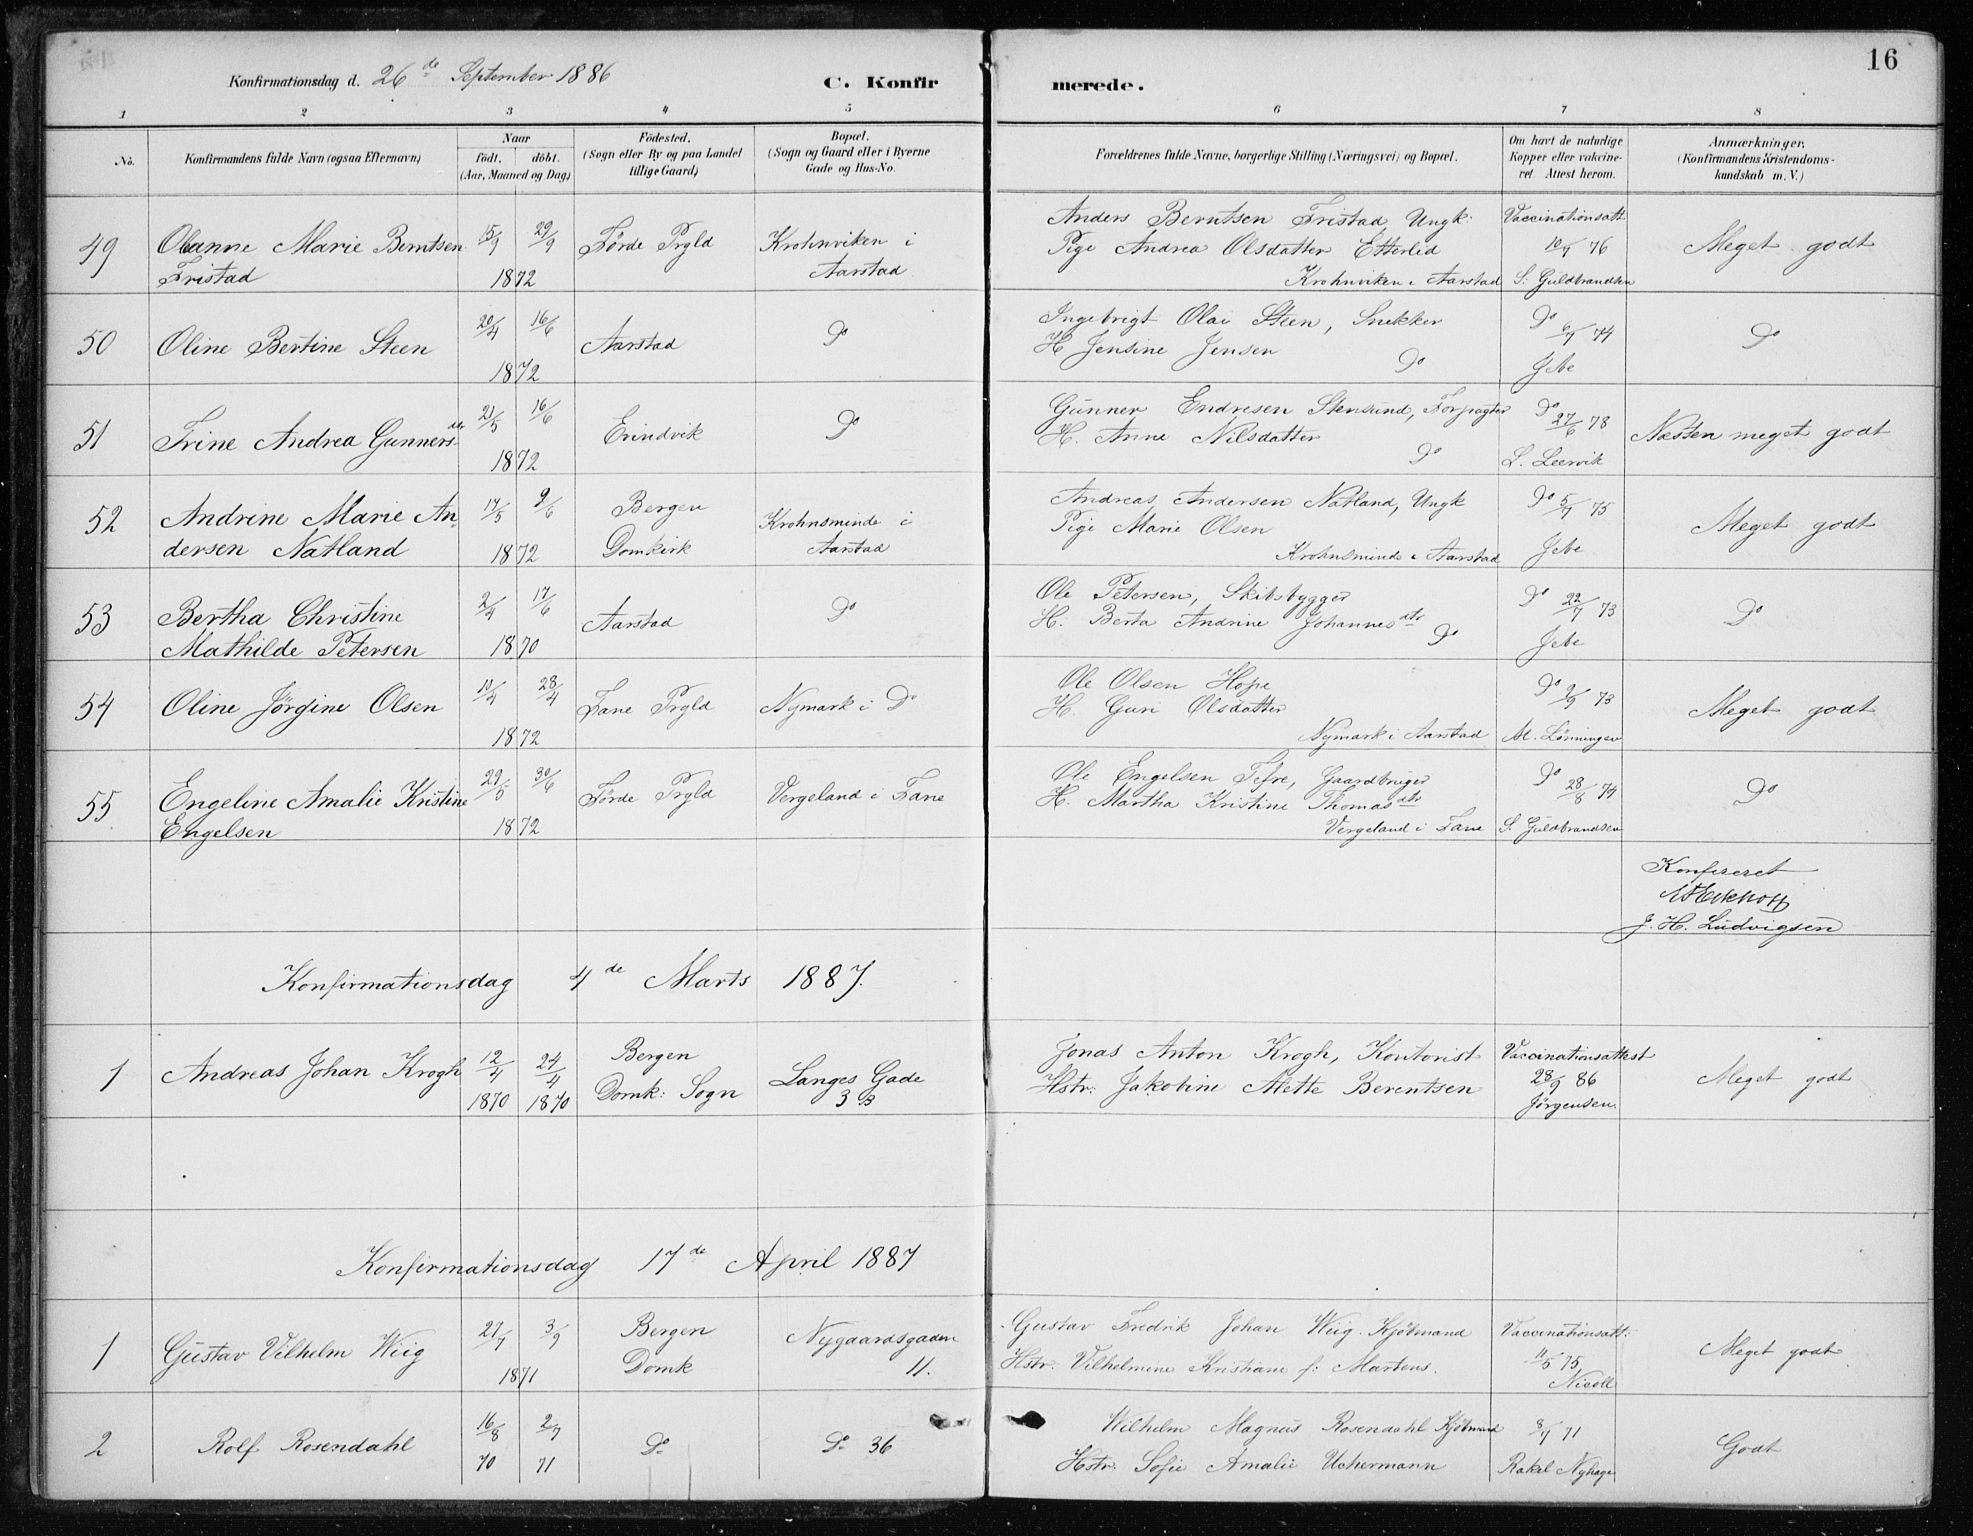 16
Konfirmationsdag d. 26de September 1886
C. Konfirmerede.
1 2 3 4 5 6 7 8
No. Konfirmandens fulde Navn (ogsaa Efternavn) Naar födt. döbt. (Aar, Maaned og Dag) Födested. (Sogn eller By og paa Landet tillige Gaard) Bopæl. (Sogn og Gaard eller i Byerne Gade og Hus-No. Forældrenes fulde Navne, borgerlige Stilling (Næringsvei) og Bopæl. Om havt de naturlige Kopper eller vakcineret. Attest herom. Anmærkninger. (Konfirmandens Kristendomskundskab m. V.)
49 Olanne Marie Berntsen 15/9 29/9 Förde Prgld Krohnviken i Anders Berntsen Fristad, Ungk. Vaccinationsatt.
Fristad 1872 Aarstad Pige Andrea Olsdatter Etterlid 10/9 76 Meget godt
Krohnviken i Aarstad S. Guldbrandsen
50 Oline Bertine Steen 20/4 16/6 Aarstad Do Ingebrigt Olai Steen, Snekker Do 6/7 74 Do
1872 H. Jensine Jensen Do Jebe
51 Trine Andrea Gunnersdtr 21/5 16/6 Evindvik Do Gunner Endresen Stensund, Forpagter Do 27/6 78 Næsten meget godt
1872 H. Anne Nilsdatter Do L. Leervik
52 Andrine Marie An- 17/5 9/6 Bergen Krohnsminde i Andreas Andersen Natland, Ungk Do 5/7 75 Meget godt
dersen Natland 1872 Domkirk Aarstad Pige Marie Olsen
Krohnsminde i Aarstad Jebe
53 Bertha Christine 2/4 17/6 Aarstad Do Ole Petersen, Skibsbygger Do 22/7 73 Do
Mathilde Petersen 1870 H. Berta Andrine Johannesdtr Do Jebe
54 Oline Jörgine Olsen 10/4 28/4 Fane Prgld Nymark i Do Ole Olsen Hope Do 2/9 73 Meget godt
1872 H. Guri Olsdatter
Nymark i Aarstad M. Lönningen
55 Engeline Amalie Kristine 29/5 30/6 Förde Prgld Vergeland i Fane Ole Engelsen Tefre, Gaardbruger Do 28/8 74 Do
Engelsen 1872 H. Martha Kristine Thomasdtr
Vergeland i Fane S. Guldbrandsen
Konfereret
J. H. Ludvigsen
Konfirmationsdag 4de Marts 1887.
1 Andreas Johan Krogh 12/4 24/4 Bergen Langes Gade Jonas Anton Krogh, Kontorist Vaccinationsattest
1870 1870 Domk: Sogn 3 B Hstr: Jakobine Mette Berentsen 28/9 86 Meget godt
Jörgensen.
Konfirmationsdag 17de April 1887
1 Gustav Vilhelm Wiig 27/7 3/9 Bergen Nygaardsgaden Gustav Fredrik Johan Wiig. Kjöbmand Vaccinationsatt:
1871 Domk 11. Hstr: Vilhelmine Kristiane f: Martens. 11/5 75, Meget godt
Nicoll
2 Rolf Rosendahl 16/8 2/7 Do Do 36 Wilhelm Magnus Rosendahl Kjöbmand 8/7 71 Godt
70 71 Hstr. Sofie Amalie Uchermann Rakel Nyhage